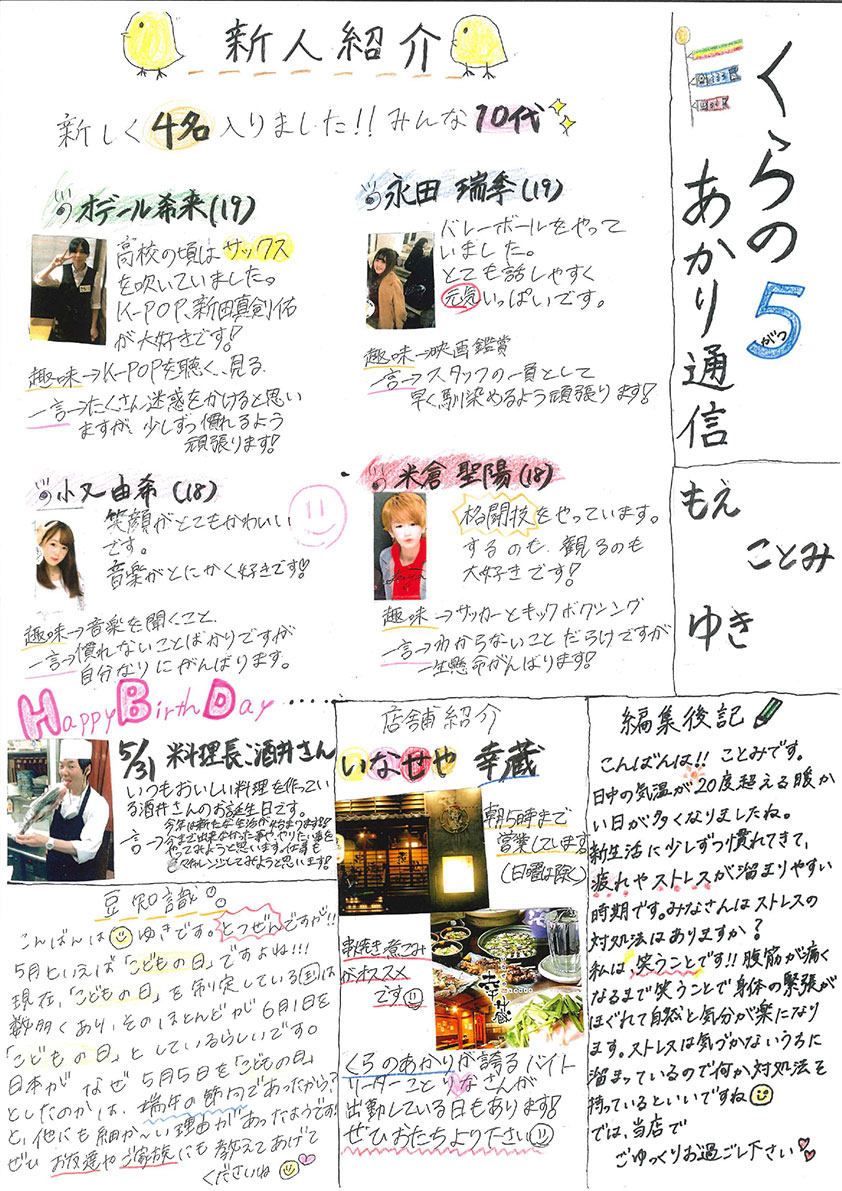 くらの
あかり通信
5
がつ
もえ
ことみ
ゆき
新人紹介
新しく4名入りました!!みんな10代
オデール希来(19)
高校の頃はサックス
を吹いていました。
K-POP、新田真剣佑
が大好きです!
趣味→K-POPを聴く、見る
一言→たくさん迷惑をかけると思い
ますが、少しずつ慣れるよう
頑張ります!
永田 瑞季(19)
バレーボールをやって
いました。
とても話しやすく
元気いっぱいです。
趣味→映画鑑賞
一言→スタッフの一員として
早く馴染めるよう頑張ります!
小又由希(18)
笑顔がとてもかわいい
です。
音楽がとにかく好きです!
趣味→音楽を聞くこと
一言→慣れないことばかりですが
自分なりにがんばります。
米倉 聖陽(18)
格闘技をやっています。
するのも、観るのも
大好きです!
趣味→サッカーとキックボクシング
一言→わからないことだらけですが
一生懸命がんばります!
Happy Birth Day……
5/31 料理長:酒井さん
いつもおいしい料理を作ってい
る酒井さんのお誕生日です。
一言→
今年は新たな生活が始まります!
今まで出来なかった事や、やりたい事を
やってみようと思います。仕事も
色々チャレンジしてみようと思います!
豆知識
こんばんは ゆきです。とつぜんですが!!
5月といえば「こどもの日」ですよね!!!
現在、「こどもの日」を制定している国は
数多くあり、そのほとんどが6月1日を
「こどもの日」としているらしいです。
日本がなぜ5月5日を「こどもの日」
としたのかは、端午の節句であったから?
と、他にも細か〜い理由があったようです!
ぜひお友達やご家族にも教えてあげて
くださいね
店舗紹介
いなせや 幸蔵
朝5時まで
営業しています
(日曜は除く)
串焼き煮こみ
がオススメ
です
くらのあかりが誇るバイト
リーダーことりなさんが
出勤している日もあります!
ぜひおたちより下さい
編集後記
こんばんは!! ことみです。
日中の気温が20度超える暖か
い日が多くなりましたね。
新生活に少しずつ慣れてきて、
疲れやストレスが溜まりやすい
時期です。みなさんはストレスの
対処法はありますか?
私は、笑うことです!!腹筋が痛く
なるまで笑うことで身体の緊張が
ほぐれて自然と気分が楽になり
ます。ストレスは気づかないうちに
溜まっているので何か対処法を
持っているといいですね
では、当店で
ごゆっくりお過ごし下さい